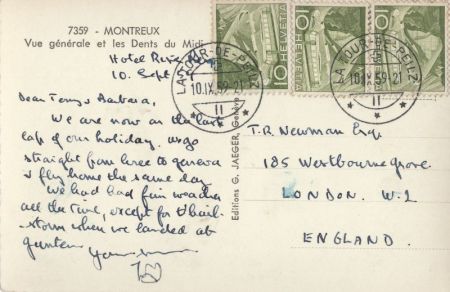 7359 - MONTREUX
Vue générale et les Dents du Midi
Hotel
10. Sept
Dear Tony & Barbara,
We are now on the last
lap of our holiday. We go
straight from here to Geneva
& fly home the same day.
We have had fine weather
all the time, except for
storm when we landed at
HELVETIA
10
HELVETIA
10
HELVETIA
10
LA TOUR-DE-PEILZ
10.IX.59-21
II
LA TOUR-DE-PEILZ
10.IX.59-21
II
Editions G. JAEGER, Genève
T.R. Newman Esq.
185 Westbourne grove.
LONDON. W.2
ENGLAND.